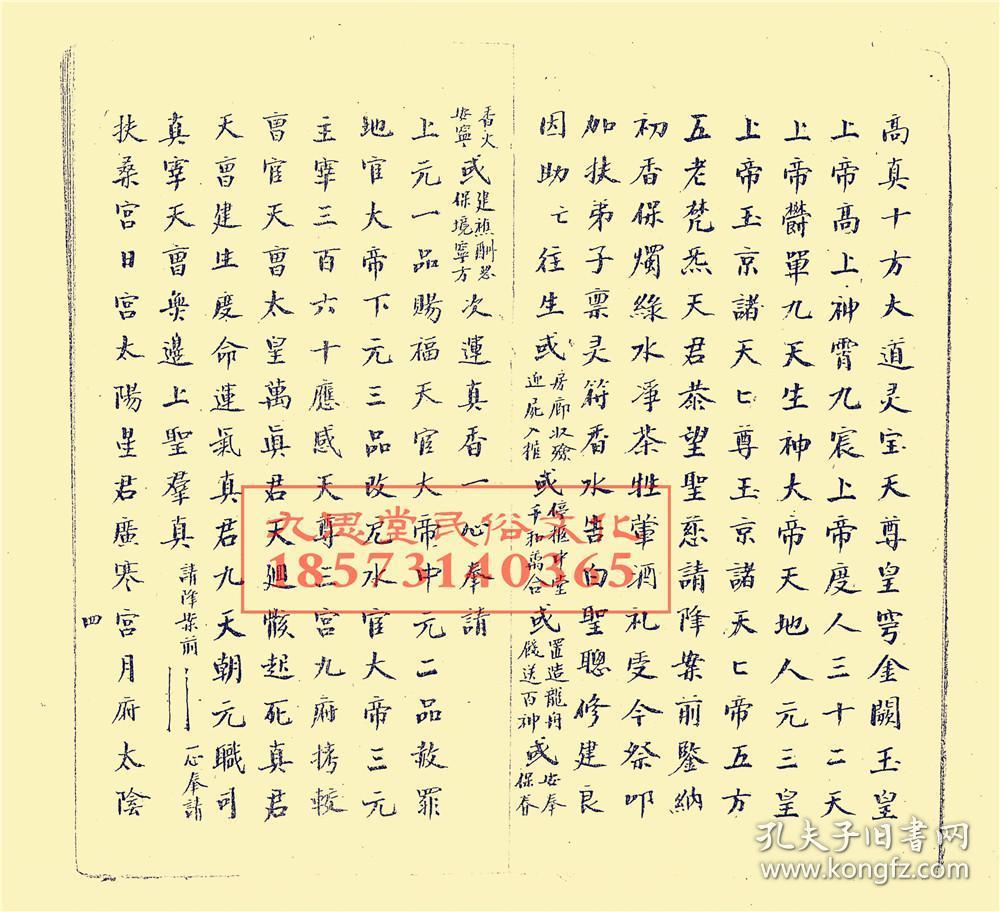 高真十方大道灵宝天尊皇穹金闕玉皇
上帝高上神霄九宸上帝度人三十二天
上帝欝單九天生神大帝天地人元三皇
上帝玉京諸天匕尊玉京諸天匕帝五方
五老梵炁天君恭望聖慈請降案前鑒納
初香保燭綠水凈茶牲葷酒礼受今祭叩
加扶弟子禀灵符香水告白聖聰修建良
因助亡往生或房廊收殮迎屍入棺或停棺中堂平和萬合或置造龍舟餞送百神或安奉保眷
香火安寧或建醮酬恩保境寧方次運真香一心奉請
上元一品賜福天官大帝中元二品赦罪
地官大帝下元三品改厄水官大帝三元
主宰三百六十應感天尊三宮九府搒較
曹官天曹太皇萬真君天廻骸起死真君
天曹建生度命運氣真君九天朝元職司
真宰天曹無邊上聖羣真 請降案前 一心奉請
扶桑宮日宮太陽星君廣寒宮月府太陰
四
九思堂民俗文化
18573140365
孔夫子旧書网
www.kongfz.com